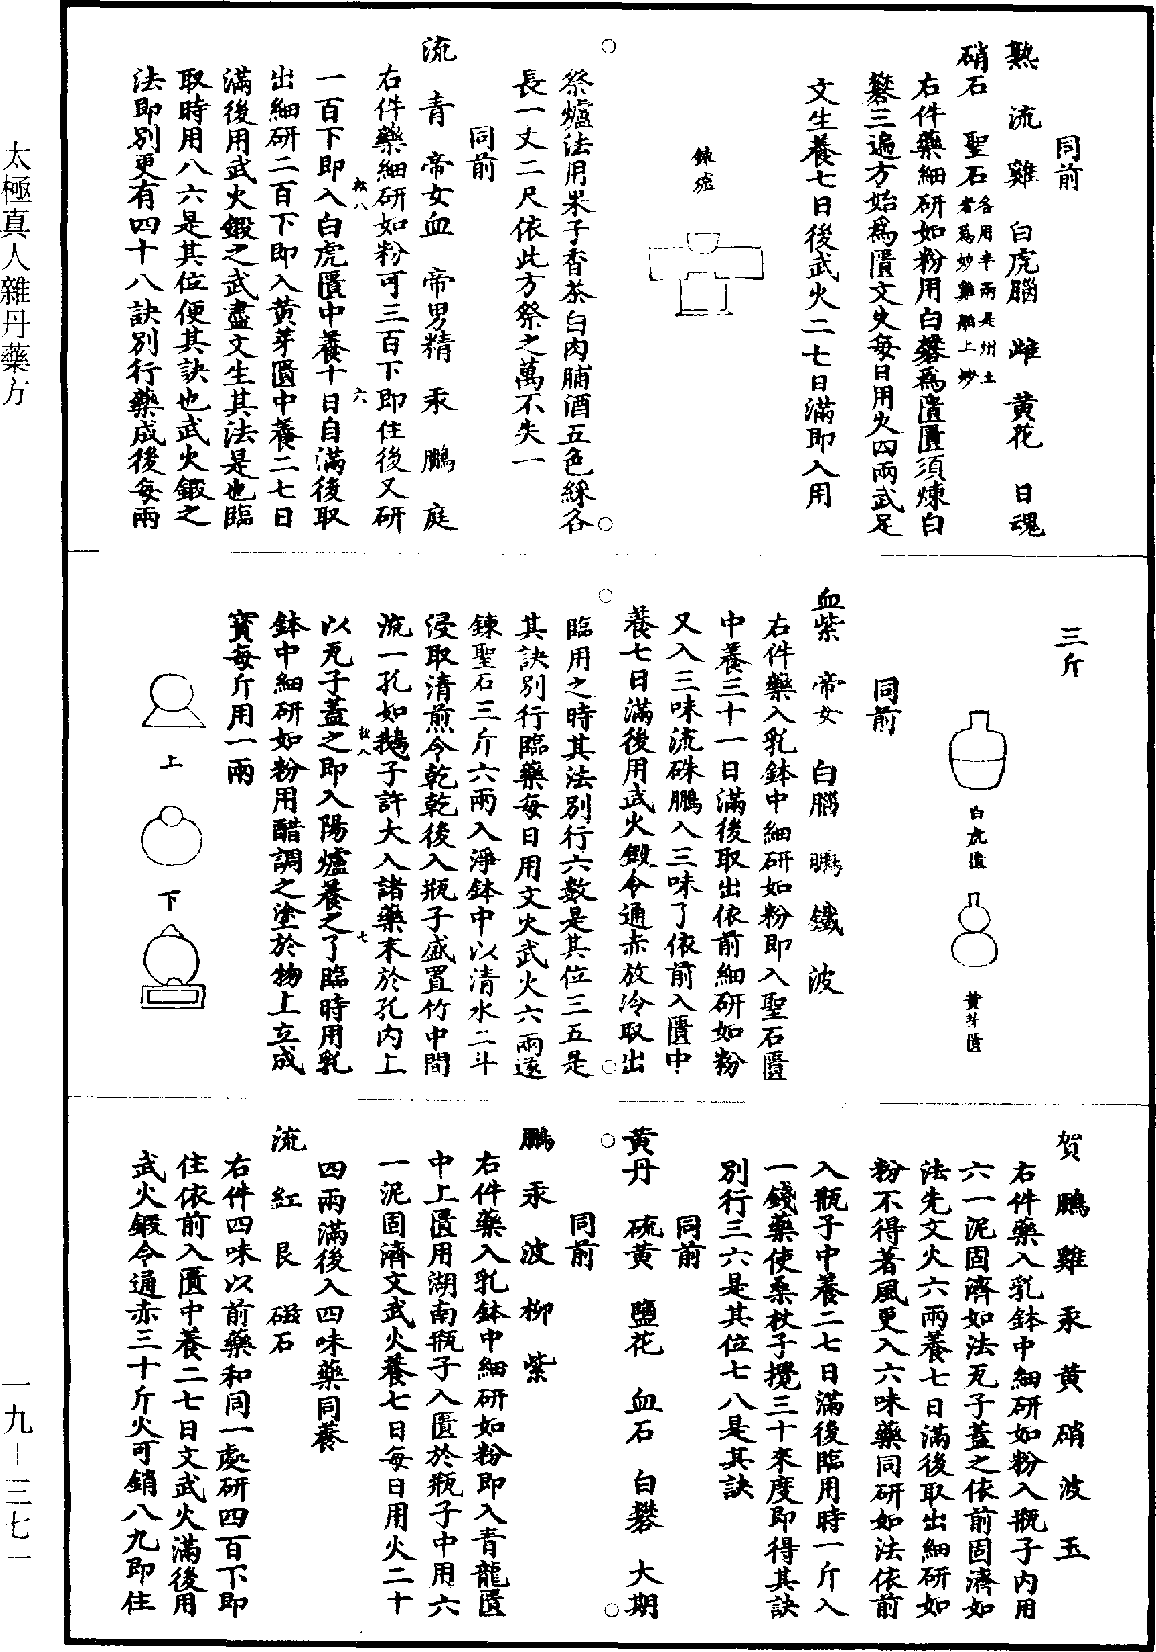 同前
熟 流 雞 白虎腦 雌 黃花 日魂
硝石 聖石各用半兩是州土者為妙雞舶上妙
右件藥細研如粉用白礬為匱匱須煉白
礬三遍方始為匱文火每日用火四兩武足
文生養七日後武火二七日滿即入用
祭爐法用果子香茶白肉脯酒五色綵各
長一丈二尺依此方祭之萬不失一
同前
流 青 帝女血 帝男精 汞 鵬 庭
右件藥細研如粉可三百下即住後又研
一百下即入白虎匱中養十日自滿後取
出細研二百下即入黃芽匱中養二七日
滿後用武火鍛之武盡文生其法是也臨
取時用八六是其位便其訣也武火鍛之
法即別更有四十八訣別行藥成後每兩
三斤
白虎匱
黃芽匱
同前
血紫 帝女 白腦 鵬 鐵 波
右件藥入乳鉢中細研如粉即入聖石匱
中養三十一日滿後取出依前細研如粉
又入三味流硃鵬入三味了依前入匱中
養七日滿後用武火鍛令通赤放冷取出
臨用之時其法別行六數是其位三五是
其訣別行臨藥每日用文火武火六兩遂
鍊聖石三斤六兩入淨鉢中以清水二斗
浸取清煎令乾乾後入瓶子盛置竹中間
流一孔如鵝子許大入諸藥末於孔內上
以瓦子蓋之即入陽爐養之了臨時用乳
鉢中細研如粉用醋調之塗於物上立成
寶每斤用一兩
上
下
賀 鵬 雞 汞 黃 硝 波 玉
右件藥入乳鉢中細研如粉入瓶子內用
六一泥固濟如法瓦子蓋之依前固濟如
法先文火六兩養七日滿後取出細研如
粉不得著風更入六味藥同研如法依前
入瓶子中養二七日滿後臨用時一斤入
一錢藥使桑杖子攪三十來度即得其訣
別行三六是其位七八是其訣
同前
黃丹 硫黃 鹽花 血石 白礬 大期
同前
鵬 汞 波 柳 紫
右件藥入乳鉢中細研如粉即入青龍匱
中上匱用湖南瓶子入匱於瓶子中用六
一泥固濟文武火養七日每日用火二十
四兩滿後入四味藥同養
流 紅 艮 磁石
右件四味以前藥和同一處研四百下即
住依前入匱中養二七日文武火滿後用
武火鍛令通赤三十斤火可銷八九即住
太極真人雜丹藥方
一九－三七一